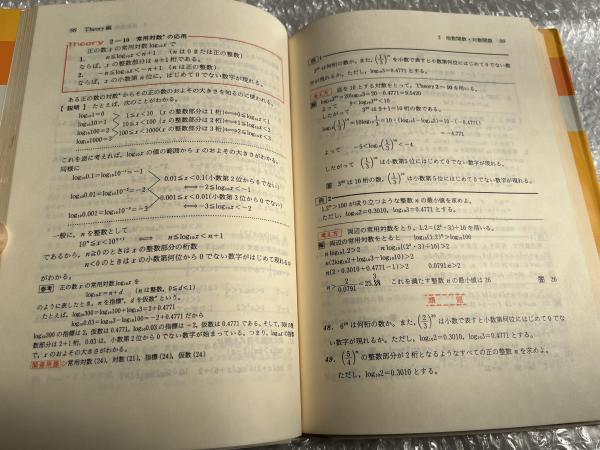 98 Theory編
Theory 2-10 常用対数の応用
正の数 x の常用対数 log₁₀x で
1. n≦log₁₀x<n+1 (n は 0 または正の整数)
ならば, x の整数部分は n+1 桁である。
2. −n≦log₁₀x<−n+1 (n は正の整数)
ならば, x の小数第 n 位に, はじめて 0 でない数字が現れる。
ある正の数の対数からもその正の数のおよその大きさを知るのに使われる。
【説明】 たとえば, 次のことがわかる。
log₁₀1=0
log₁₀10=1
log₁₀100=2
log₁₀1000=3
1≦x<10 (x の整数部分は 1 桁)⟺0≦log₁₀x<1
10≦x<100 (x の整数部分は 2 桁)⟺1≦log₁₀x<2
100≦x<1000 (x の整数部分は 3 桁)⟺2≦log₁₀x<3
これを逆に考えれば, log₁₀x の値の範囲から x のおよその大きさがわかる。
同様に
log₁₀0.1=log₁₀10⁻¹=−1
log₁₀0.01=log₁₀10⁻²=−2
log₁₀0.001=log₁₀10⁻³=−3
0.01≦x<0.1(小数第 2 位から 0 でない)
⟺−2≦log₁₀x<−1
0.001≦x<0.01(小数第 3 位から 0 でない)
⟺−3≦log₁₀x<−2
一般に, n を整数として
10ⁿ≦x<10ⁿ⁺¹ ⟺ n≦log₁₀x<n+1
であるから, n≧0 のときは x の整数部分の桁数
n<0 のときは x の小数第何位から 0 でない数字がはじめて現れるか
がわかる。
参考 正の数 x の常用対数 log₁₀x を
log₁₀x=n+d (n は整数, 0≦d<1)
のように表したとき, n を指標, d を仮数という。
たとえば, log₁₀300=log₁₀100+log₁₀3=2+0.4771
log₁₀0.03=log₁₀3−log₁₀100=−2+0.4771 だから
log₁₀300 の指標は 2, 仮数は 0.4771, log₁₀0.03 の指標は −2, 仮数は 0.4771 である。そして, 300 の整
数部分は 2+1 桁, 0.03 は, 小数第 2 位から 0 でない数字が始まっている。つまり, log₁₀x の指標
で, x のおよその大きさがわかる。
関連用語 ▷常用対数(24), 対数(21), 指標(24), 仮数(24)
2 指数関数・対数関数 99
例 1
3²⁰ は何桁の数か。また, (1/3)¹⁰ を小数で表すと小数第何位にはじめて 0 でない数
字が現れるか。ただし, log₁₀3=0.4771 とする。
考え方 底を 10 とする対数をとって, Theory 2−10 を用いる。
解 log₁₀3²⁰=20log₁₀3=20・0.4771=9.5420
よって 9<log₁₀3²⁰<10
したがって 3²⁰ は 9+1=10 桁の数である。
log₁₀(1/3)¹⁰=10log₁₀1/3=10・(log₁₀1−log₁₀3)=10・(−0.4771)
=−4.771
よって −5<log₁₀(1/3)¹⁰<−4
したがって (1/3)¹⁰ は小数第 5 位にはじめて 0 でない数字が現れる。
答 3²⁰ は 10 桁の数, (1/3)¹⁰ は小数第 5 位にはじめて 0 でない数字が現れる。
例 2
1.2ⁿ>100 が成り立つような整数 n の最小値を求めよ。
ただし, log₁₀2=0.3010, log₁₀3=0.4771 とする。
考え方 両辺の常用対数をとり, 1.2=(2²・3)÷10 を用いる。
解 両辺の常用対数をとると log₁₀(1.2)ⁿ>log₁₀100
n log₁₀1.2>2 n log₁₀{(2²・3)÷10}>2
n(2log₁₀2+log₁₀3−log₁₀10)>2
n(2・0.3010+0.4771−1)>2 0.0791n>2
n>2/0.0791=25.3 これを満たす整数 n の最小値は 26 答 26
問題
48. 6¹⁰ は何桁の数か。また, (2/3)¹⁰ は小数で表すと小数第何位にはじめて 0 でな
い数字が現れるか。ただし, log₁₀2=0.3010, log₁₀3=0.4771 とする。
49. (5/4)ⁿ の整数部分が 2 桁となるようなすべての正の整数 n を求めよ。
ただし, log₁₀2=0.3010 とする。